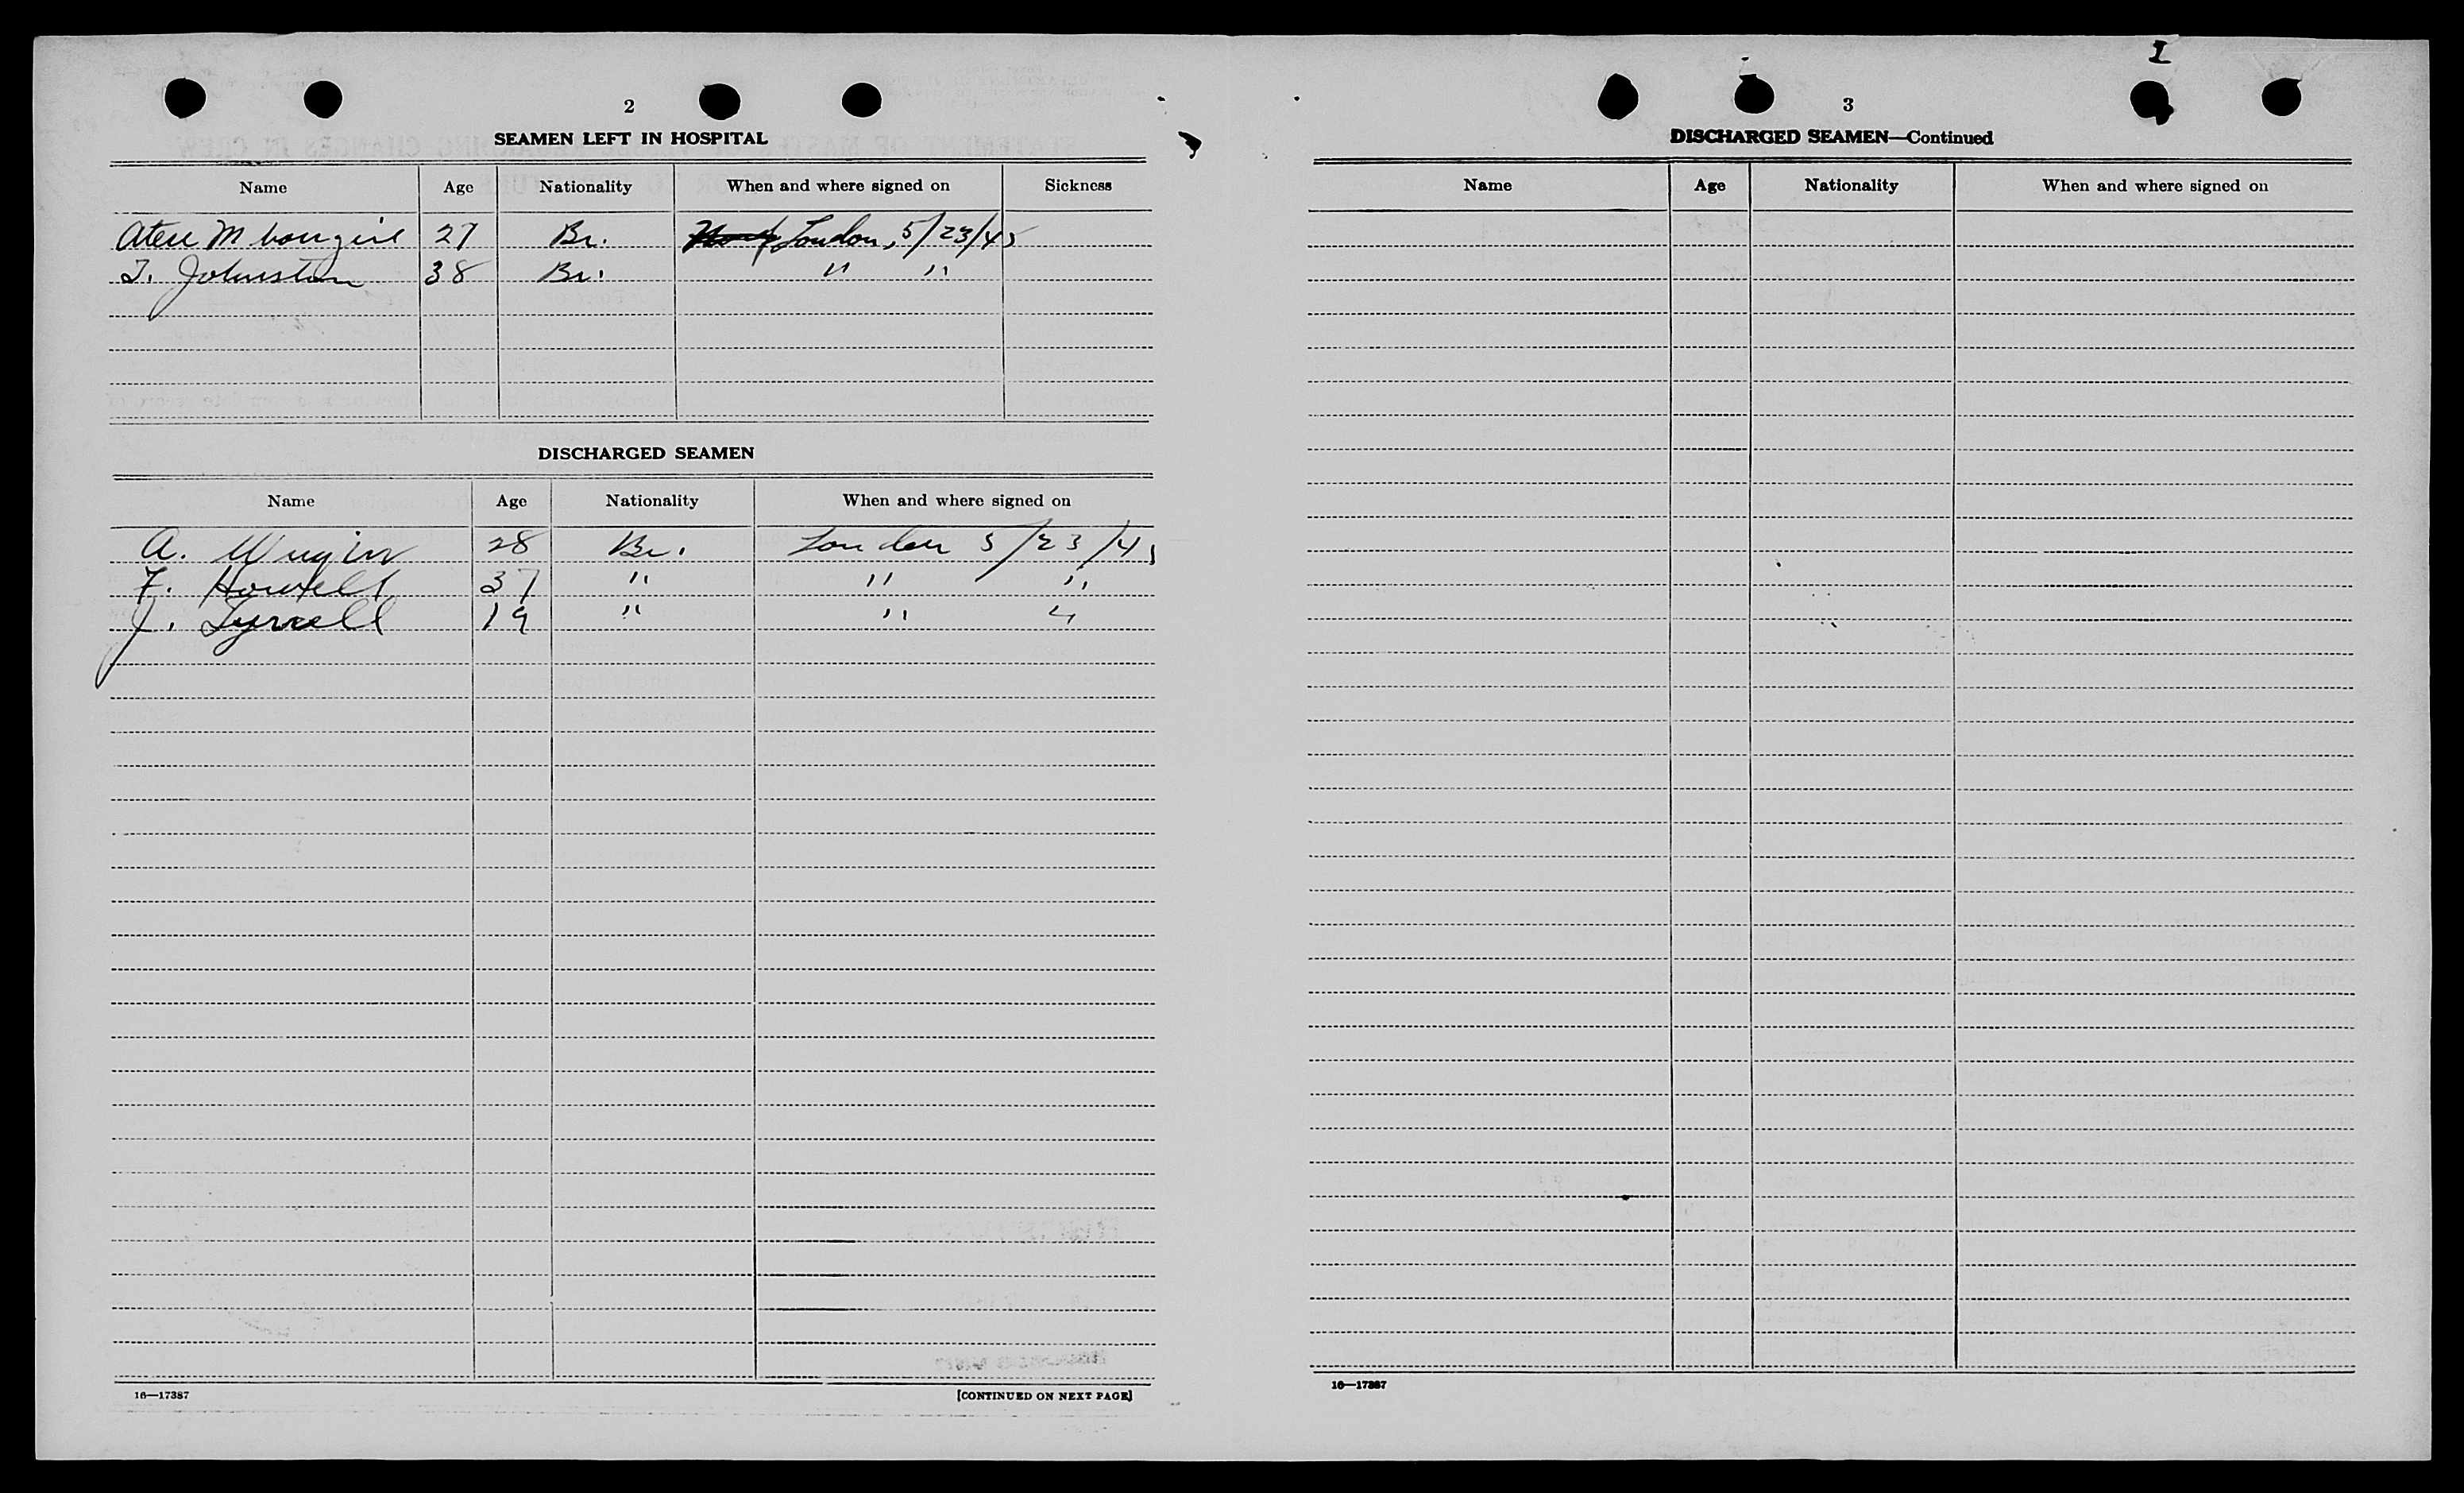 2
SEAMEN LEFT IN HOSPITAL
Name Age Nationality When and where signed on Sickness
27 Br. London, 5/23/45
J. Johnston 38 Br. " "
DISCHARGED SEAMEN
Name Age Nationality When and where signed on
A. 28 Br. London 5/23/45
F. Howell 37 " " "
J. Tyrrell 19 " " "
16—17387
[CONTINUED ON NEXT PAGE]
I
3
DISCHARGED SEAMEN—Continued
Name Age Nationality When and where signed on
16—17387